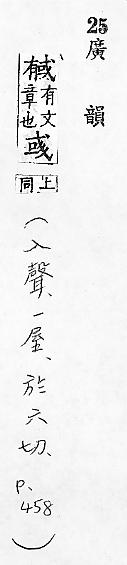 25 廣韻
戫有文章也彧上同(入聲、一屋、於六切、p. 458)